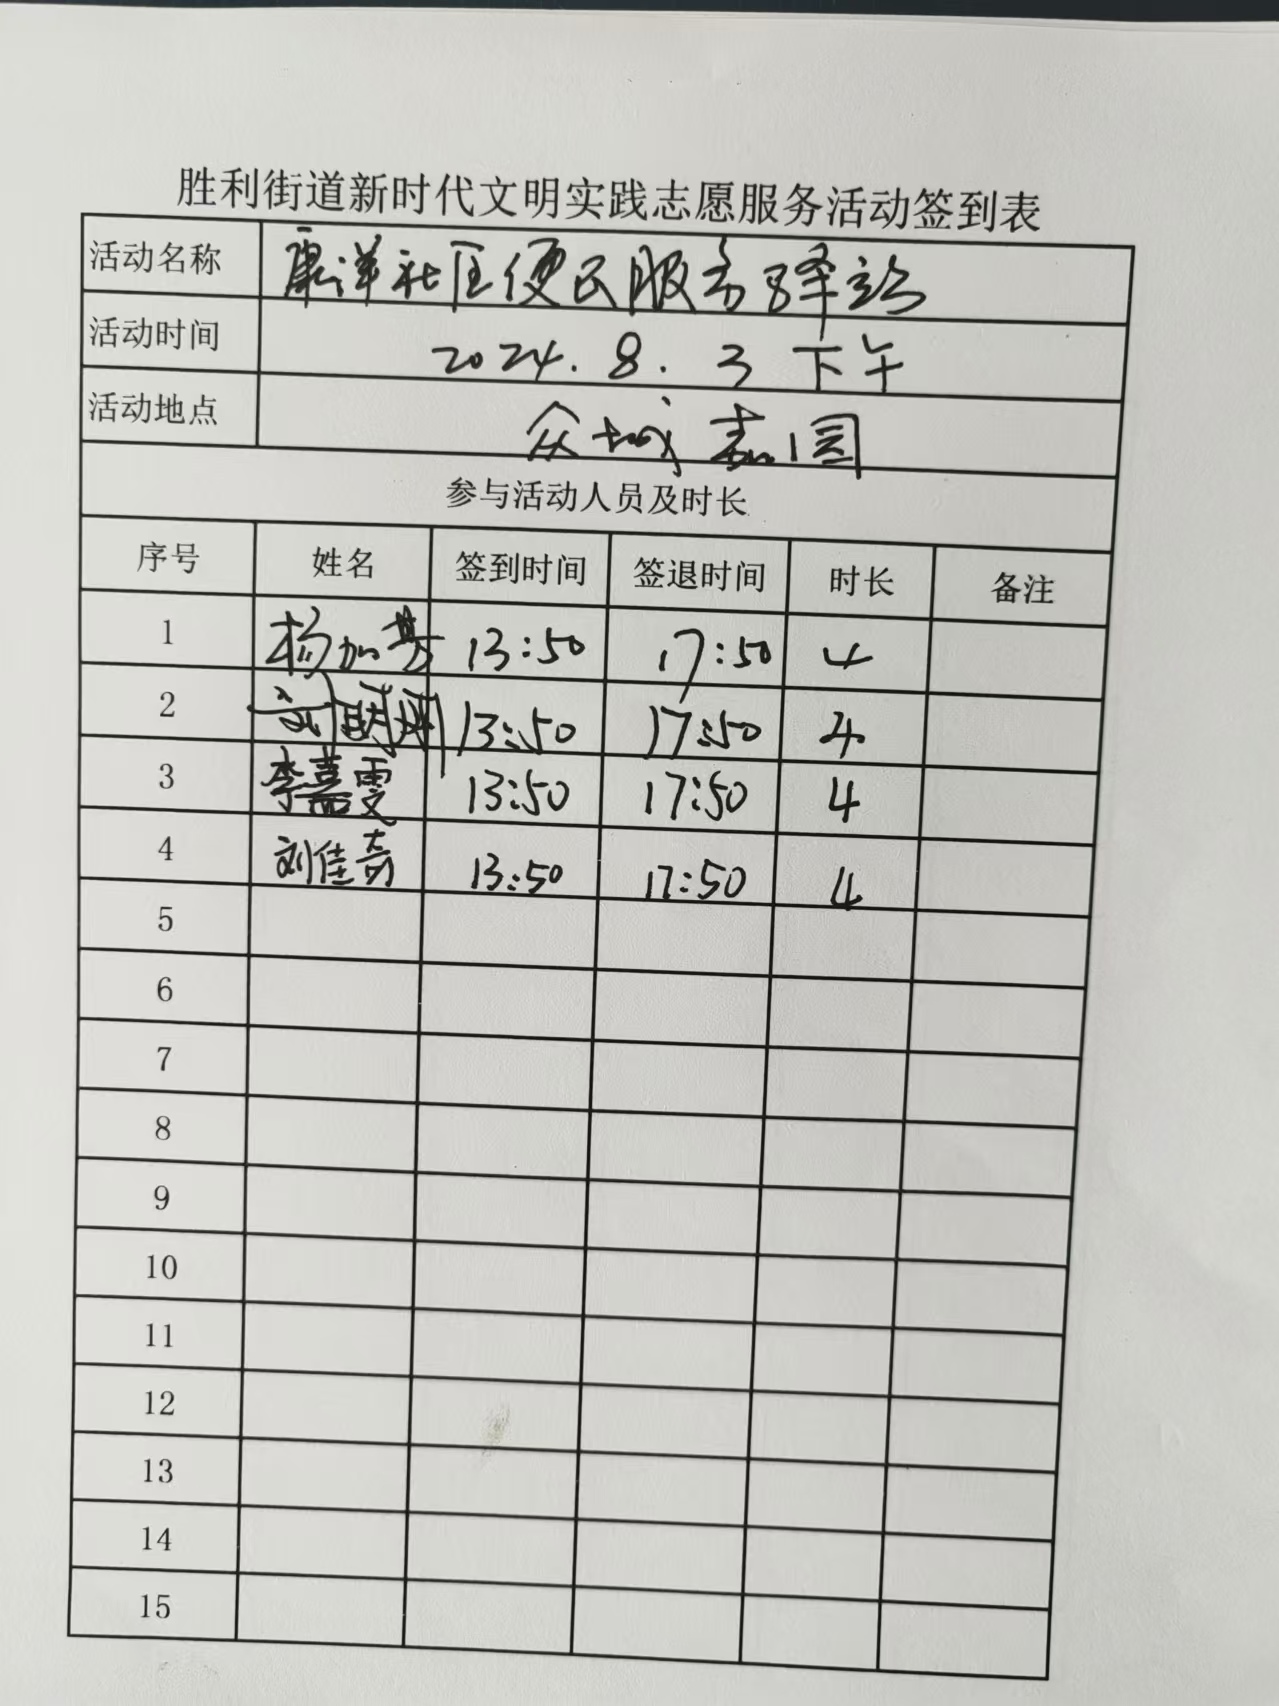 胜利街道新时代文明实践志愿服务活动签到表
活动名称 康洋社区便民服务驿站
活动时间 2024.8.3 下午
活动地点 众城 园
参与活动人员及时长
序号 姓名 签到时间 签退时间 时长 备注
1 杨加 13:50 17:50 4
2 刘明 13:50 17:50 4
3 李嘉雯 13:50 17:50 4
4 刘佳奇 13:50 17:50 4
5
6
7
8
9
10
11
12
13
14
15